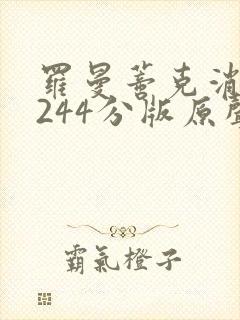 羅曼蒂克消
244分版原聲
霸氣橙子